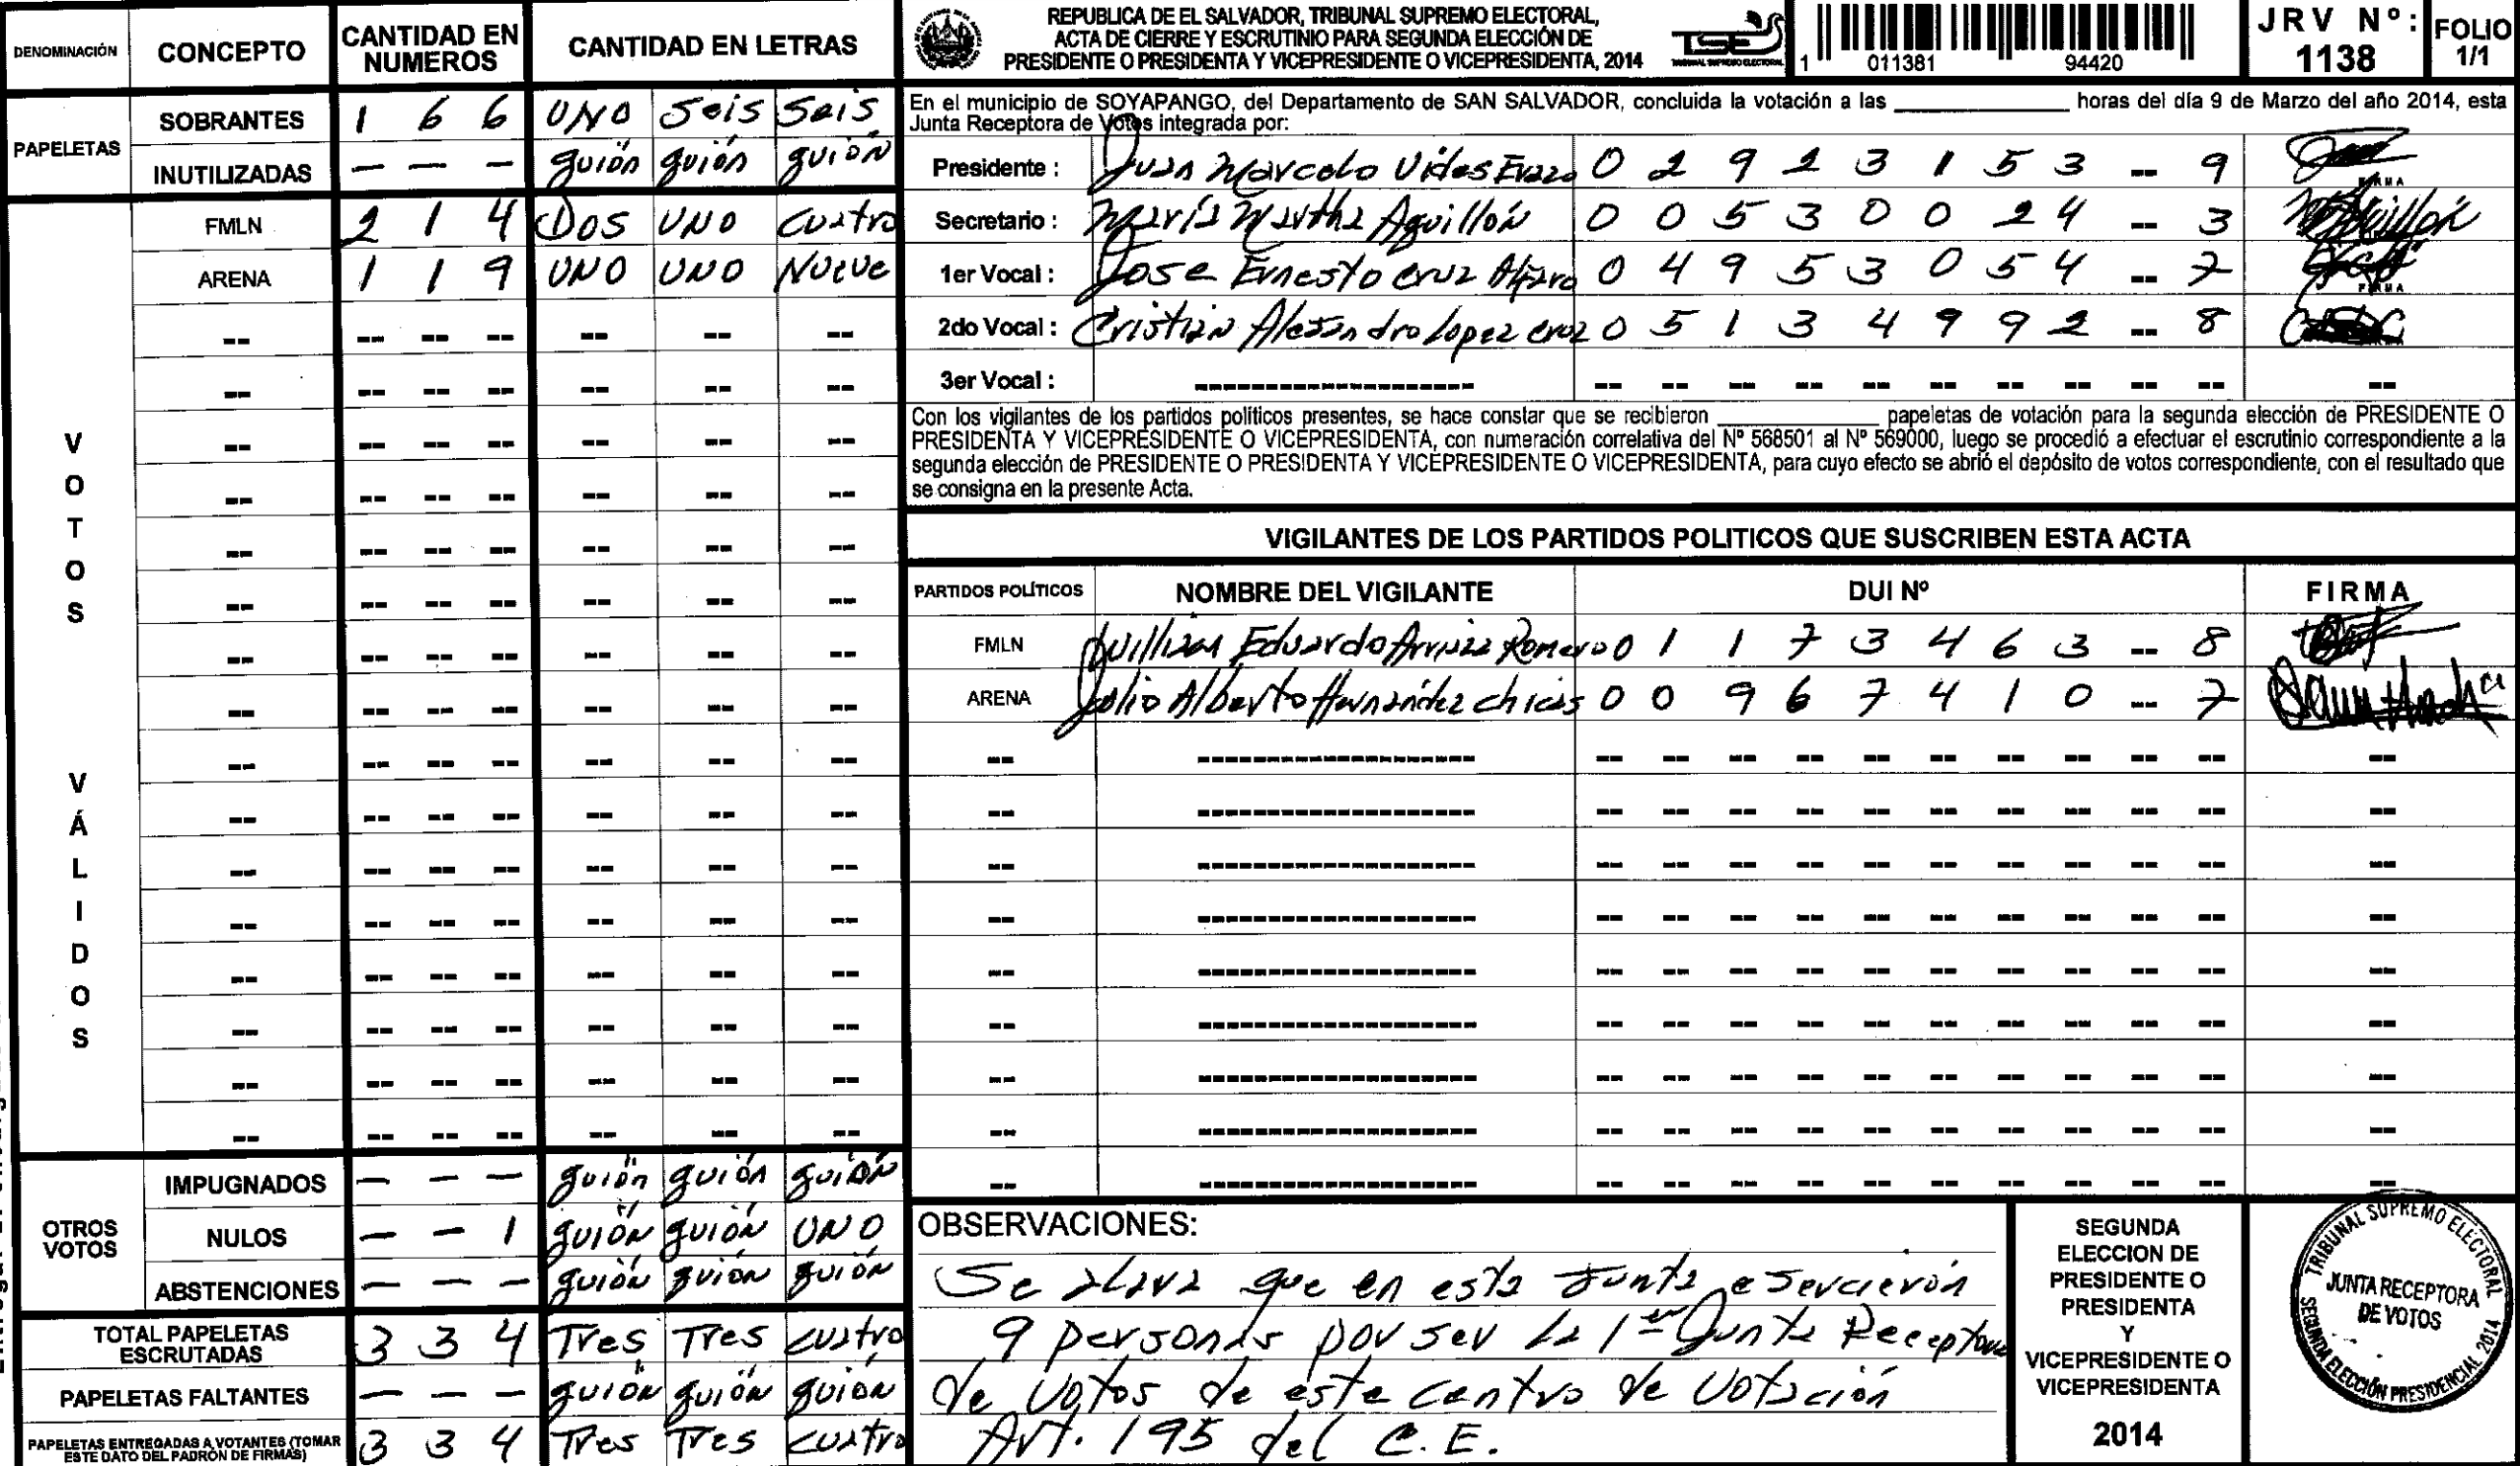 DENOMINACIÓN CONCEPTO CANTIDAD EN NUMEROS CANTIDAD EN LETRAS
PAPELETAS
SOBRANTES 1 6 6 UNO Seis Seis
INUTILIZADAS — — — guión guión guión
VOTOS VÁLIDOS
FMLN 2 1 4 DOS UNO Cuatro
ARENA 1 1 9 UNO UNO Nueve
OTROS VOTOS
IMPUGNADOS — — — guión guión guión
NULOS — — 1 guión guión UNO
ABSTENCIONES — — — guión guión guión
TOTAL PAPELETAS ESCRUTADAS 3 3 4 Tres Tres cuatro
PAPELETAS FALTANTES — — — guión guión guión
PAPELETAS ENTREGADAS A VOTANTES (TOMAR ESTE DATO DEL PADRÓN DE FIRMAS) 3 3 4 Tres Tres cuatro
REPUBLICA DE EL SALVADOR, TRIBUNAL SUPREMO ELECTORAL,
ACTA DE CIERRE Y ESCRUTINIO PARA SEGUNDA ELECCIÓN DE
PRESIDENTE O PRESIDENTA Y VICEPRESIDENTE O VICEPRESIDENTA, 2014
TSE
TRIBUNAL SUPREMO ELECTORAL
1 011381 94420
JRV Nº: 1138
FOLIO 1/1
En el municipio de SOYAPANGO, del Departamento de SAN SALVADOR, concluida la votación a las ____________ horas del día 9 de Marzo del año 2014, esta
Junta Receptora de Votos integrada por:
Presidente : Juan Marcelo Vides 0 2 9 2 3 1 5 3 -- 9
Secretario : María Martha Aguillón 0 0 5 3 0 0 2 4 -- 3
1er Vocal : Jose Ernesto Cruz Alfaro 0 4 9 5 3 0 5 4 -- 7
2do Vocal : Cristian Alessandro Lopez Cruz 0 5 1 3 4 9 9 2 -- 8
3er Vocal :
Con los vigilantes de los partidos políticos presentes, se hace constar que se recibieron ____________ papeletas de votación para la segunda elección de PRESIDENTE O
PRESIDENTA Y VICEPRESIDENTE O VICEPRESIDENTA, con numeración correlativa del Nº 568501 al Nº 569000, luego se procedió a efectuar el escrutinio correspondiente a la
segunda elección de PRESIDENTE O PRESIDENTA Y VICEPRESIDENTE O VICEPRESIDENTA, para cuyo efecto se abrió el depósito de votos correspondiente, con el resultado que
se consigna en la presente Acta.
VIGILANTES DE LOS PARTIDOS POLITICOS QUE SUSCRIBEN ESTA ACTA
PARTIDOS POLÍTICOS NOMBRE DEL VIGILANTE DUI Nº FIRMA
FMLN Eduardo Romero 0 1 1 7 3 4 6 3 -- 8
ARENA Julio Alberto Hernández Chicas 0 0 9 6 7 4 1 0 -- 7
OBSERVACIONES:
Se que en esta Junta esercierón
9 personas por ser la 1ª Junta Receptora
de Votos de este centro de Votación
Art. 195 del C.E.
SEGUNDA
ELECCION DE
PRESIDENTE O
PRESIDENTA
Y
VICEPRESIDENTE O
VICEPRESIDENTA
2014
TRIBUNAL SUPREMO ELECTORAL
JUNTA RECEPTORA
DE VOTOS
SEGUNDA ELECCIÓN PRESIDENCIAL 2014